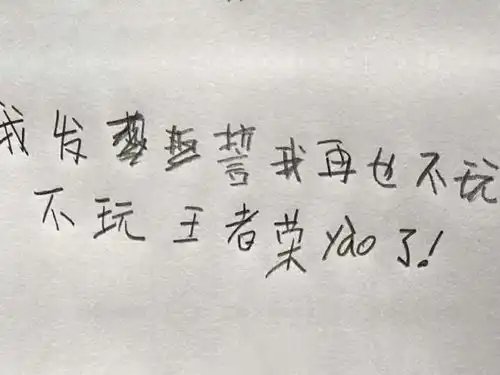 我发誓我再也不玩
不玩王者荣yào了!